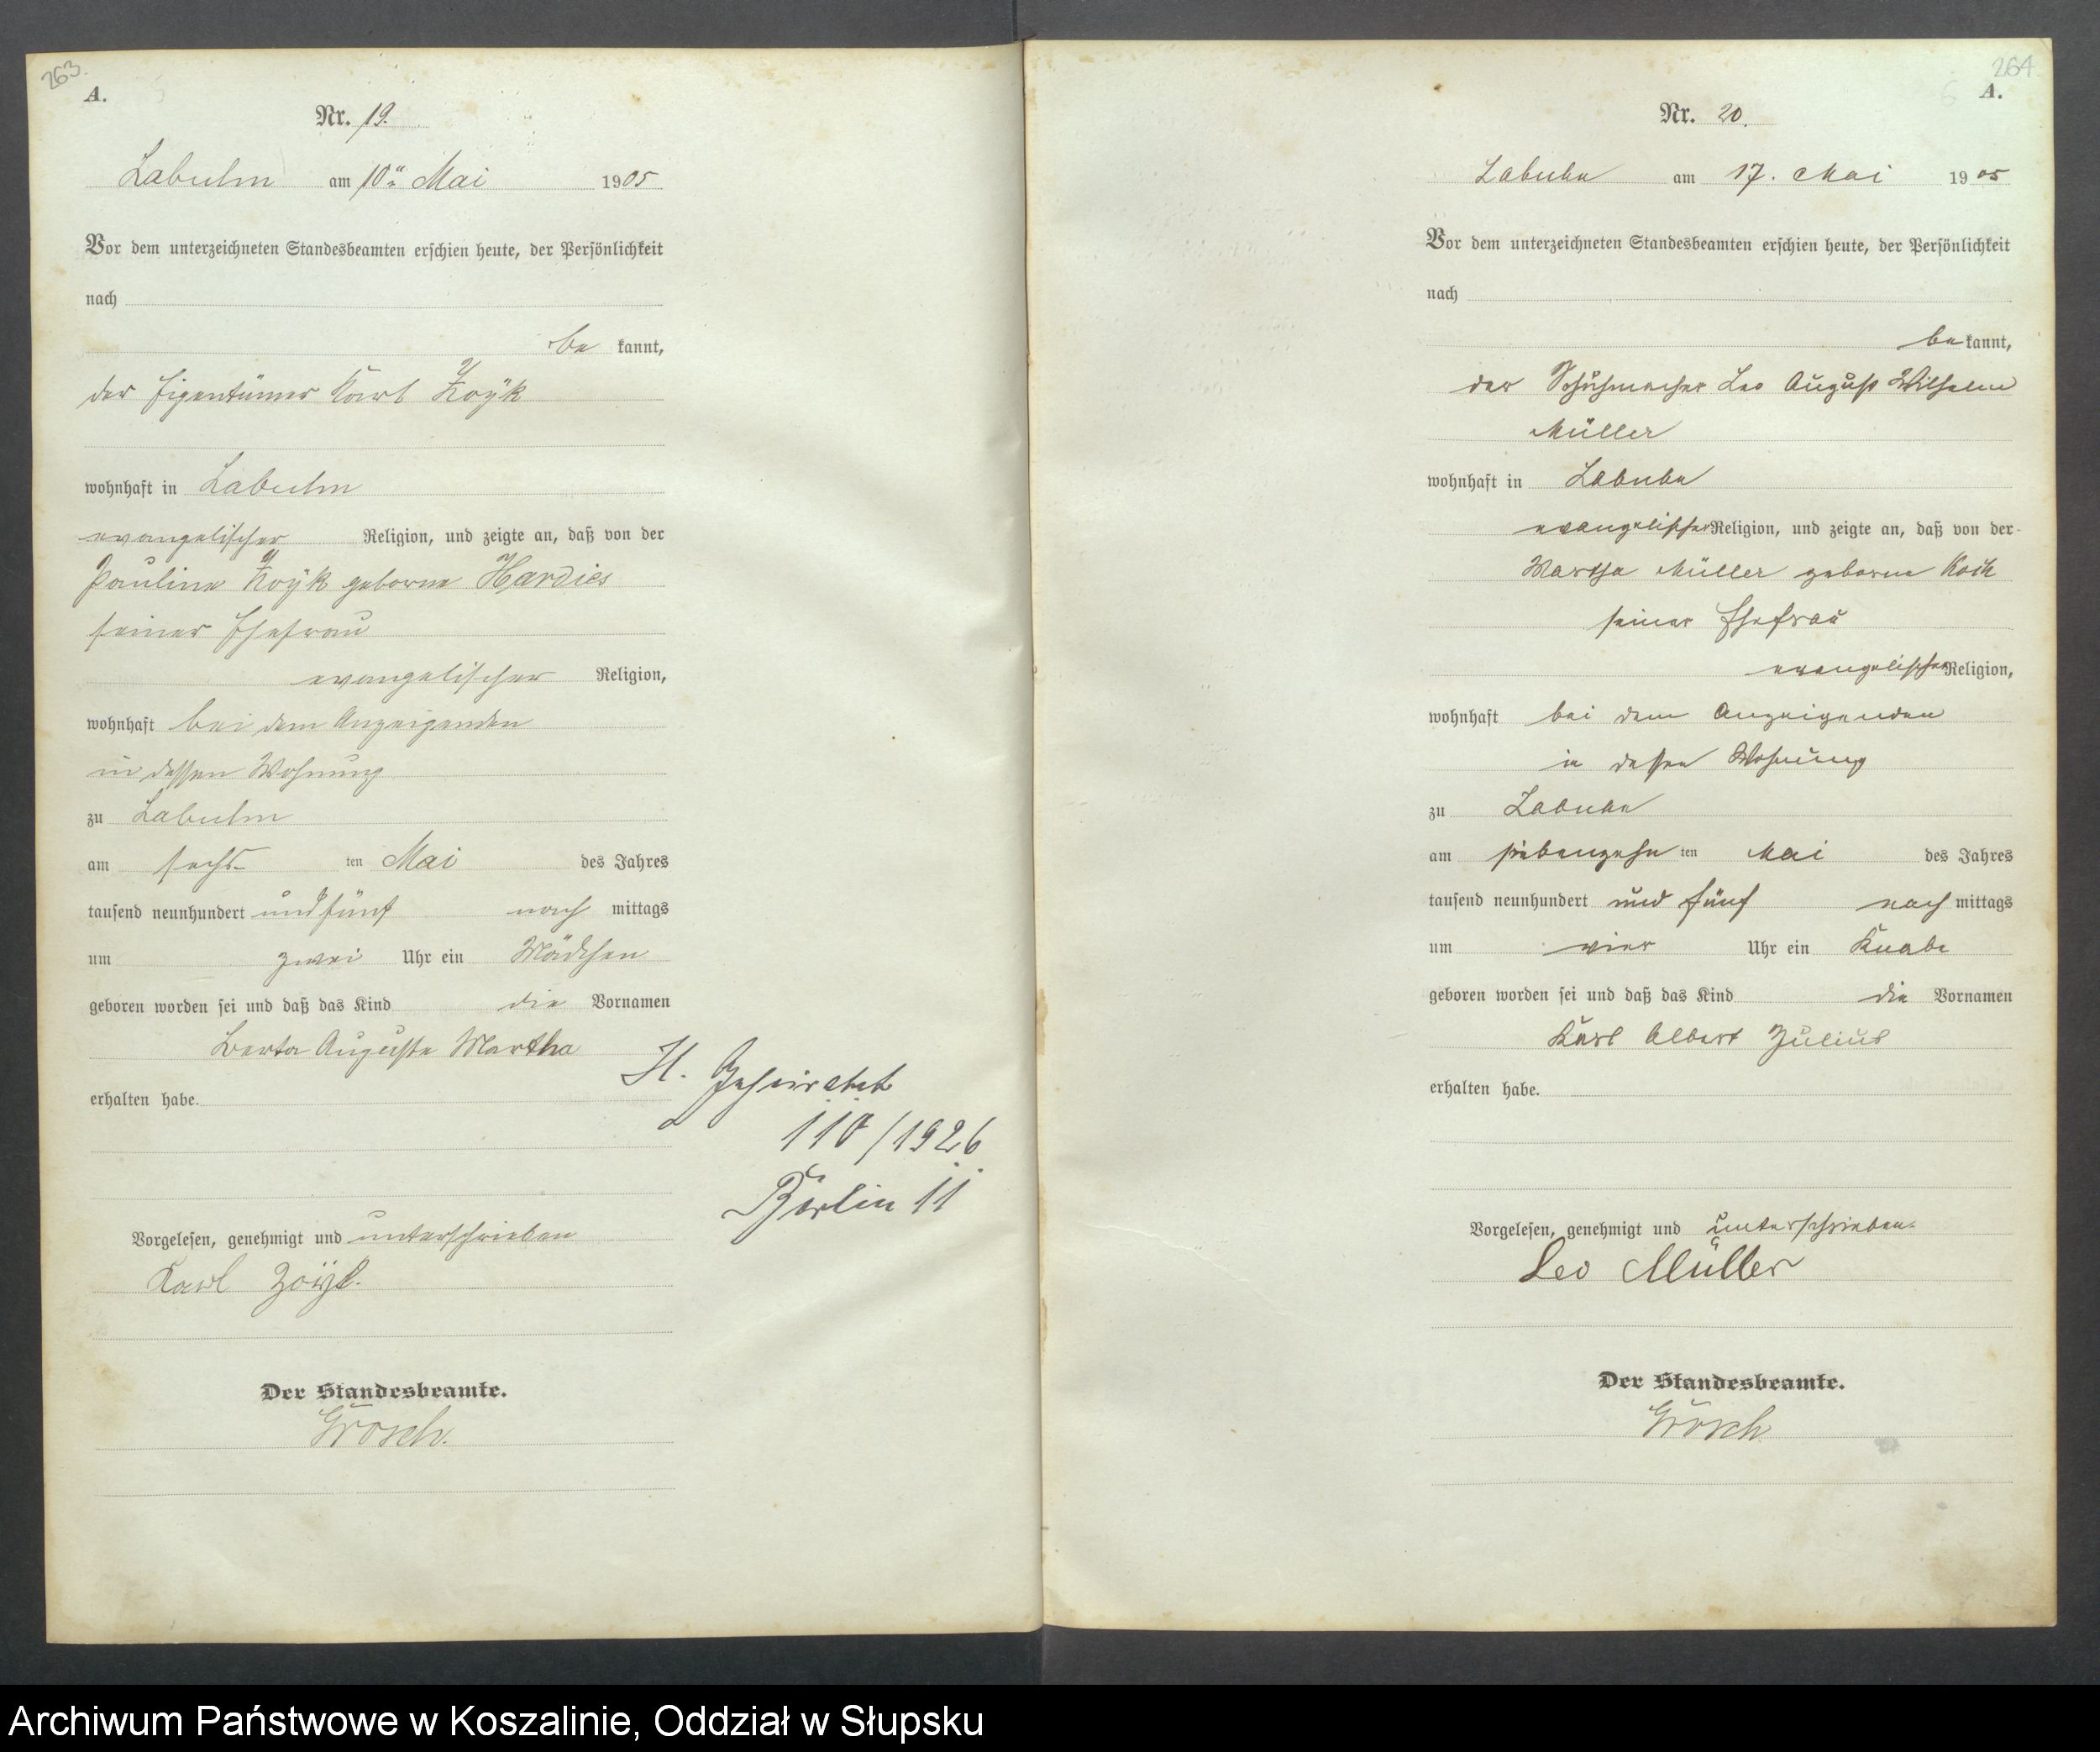 263.
A.
Nr. 19.
Labuhn am 10ten Mai 1905
Vor dem unterzeichneten Standesbeamten erschien heute, der Persönlichkeit
nach
be kannt,
der Eigentümer Karl
wohnhaft in Labuhn
evangelischer Religion, und zeigte an, daß von der
Pauline geborne Hardies
seiner Ehefrau
evangelischer Religion,
wohnhaft bei dem Anzeigenden
in dessen Wohnung
zu Labuhn
am sechs ten Mai des Jahres
tausend neunhundert und fünf nach mittags
um zwei Uhr ein Mädchen
geboren worden sei und daß das Kind die Vornamen
Berta Auguste Martha
erhalten habe.
H. Geheiratet
110/1926
Berlin 11
Vorgelesen, genehmigt und unterschrieben
Karl
Der Standesbeamte.
Grosch.
264
A.
Nr. 20.
Labuhn am 17. Mai 1905
Vor dem unterzeichneten Standesbeamten erschien heute, der Persönlichkeit
nach
be kannt,
der Schuhmacher Leo August Wilhelm
Müller
wohnhaft in Labuhn
evangelischer Religion, und zeigte an, daß von der
Martha Müller geborne Koch
seiner Ehefrau
evangelischer Religion,
wohnhaft bei dem Anzeigenden
in dessen Wohnung
zu Labuhn
am siebenzehn ten Mai des Jahres
tausend neunhundert und fünf nach mittags
um vier Uhr ein Knabe
geboren worden sei und daß das Kind die Vornamen
Karl Albert Julius
erhalten habe.
Vorgelesen, genehmigt und unterschrieben.
Leo Müller
Der Standesbeamte.
Grosch
Archiwum Państwowe w Koszalinie, Oddział w Słupsku